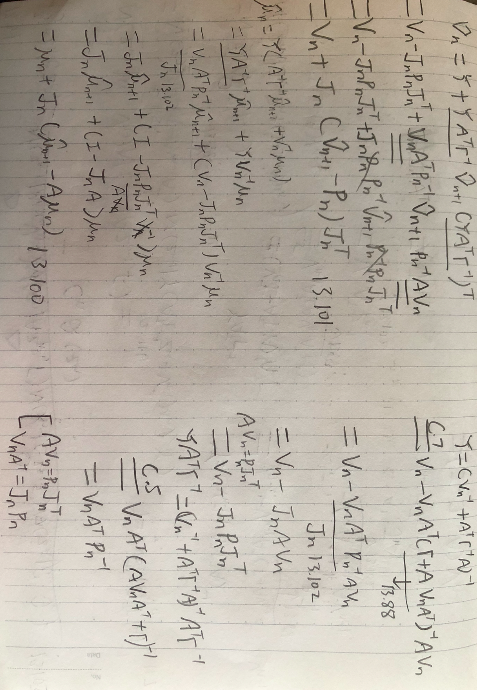 V̂n = Y + YAᵀΓ⁻¹ V̂n+1 (YAᵀΓ⁻¹)ᵀ
= Vn - JnPnJnᵀ + VnAᵀPn⁻¹ V̂n+1 Pn⁻¹AVn
= Vn - JnPnJnᵀ + JnPnPn⁻¹ V̂n+1 Pn⁻¹PnJnᵀ
= Vn + Jn (V̂n+1 - Pn) Jnᵀ 13.101
μ̂n = Y(AᵀΓ⁻¹μ̂n+1 + Vn⁻¹μn)
= YAᵀΓ⁻¹μ̂n+1 + YVn⁻¹μn
= VnAᵀPn⁻¹μ̂n+1 + (Vn - JnPnJnᵀ)Vn⁻¹μn
Jn 13.102
= Jnμ̂n+1 + (I - JnPnJnᵀVn⁻¹)μn
AVn
= Jnμ̂n+1 + (I - JnA)μn
= μn + Jn(μ̂n+1 - Aμn) 13.100
Y = (Vn⁻¹ + AᵀΓ⁻¹A)⁻¹
C.7
= Vn - VnAᵀ(Γ + AVnAᵀ)⁻¹AVn
13.88
= Vn - VnAᵀPn⁻¹AVn
Jn 13.102
= Vn - JnAVn
AVn = PnJnᵀ
= Vn - JnPnJnᵀ
YAᵀΓ⁻¹ = (Vn⁻¹ + AᵀΓ⁻¹A)⁻¹AᵀΓ⁻¹
C.5
= VnAᵀ(AVnAᵀ + Γ)⁻¹
= VnAᵀPn⁻¹
[AVn = PnJnᵀ
VnAᵀ = JnPn